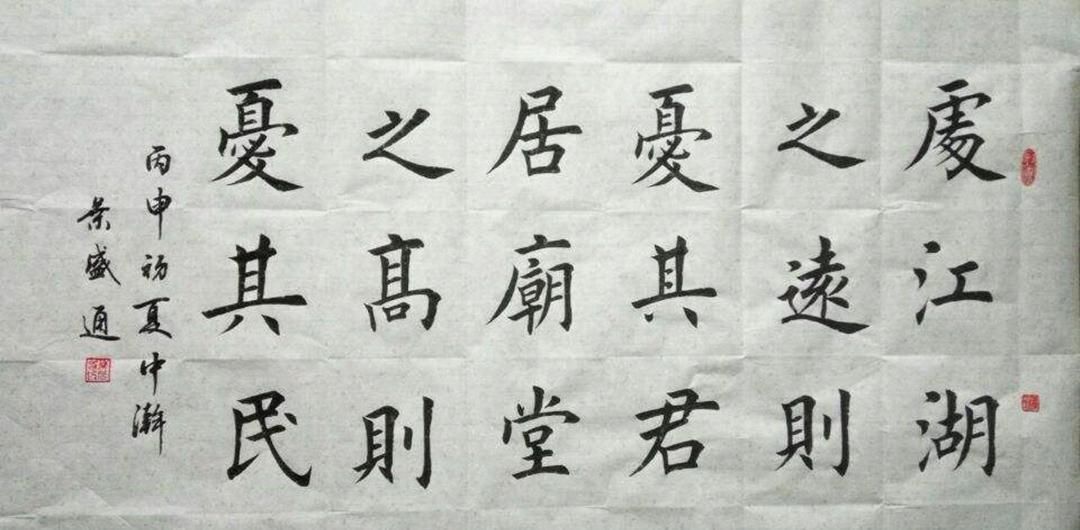 處江湖
之遠則
憂其君
居廟堂
之高則
憂其民
丙申初夏中澣
葉盛通